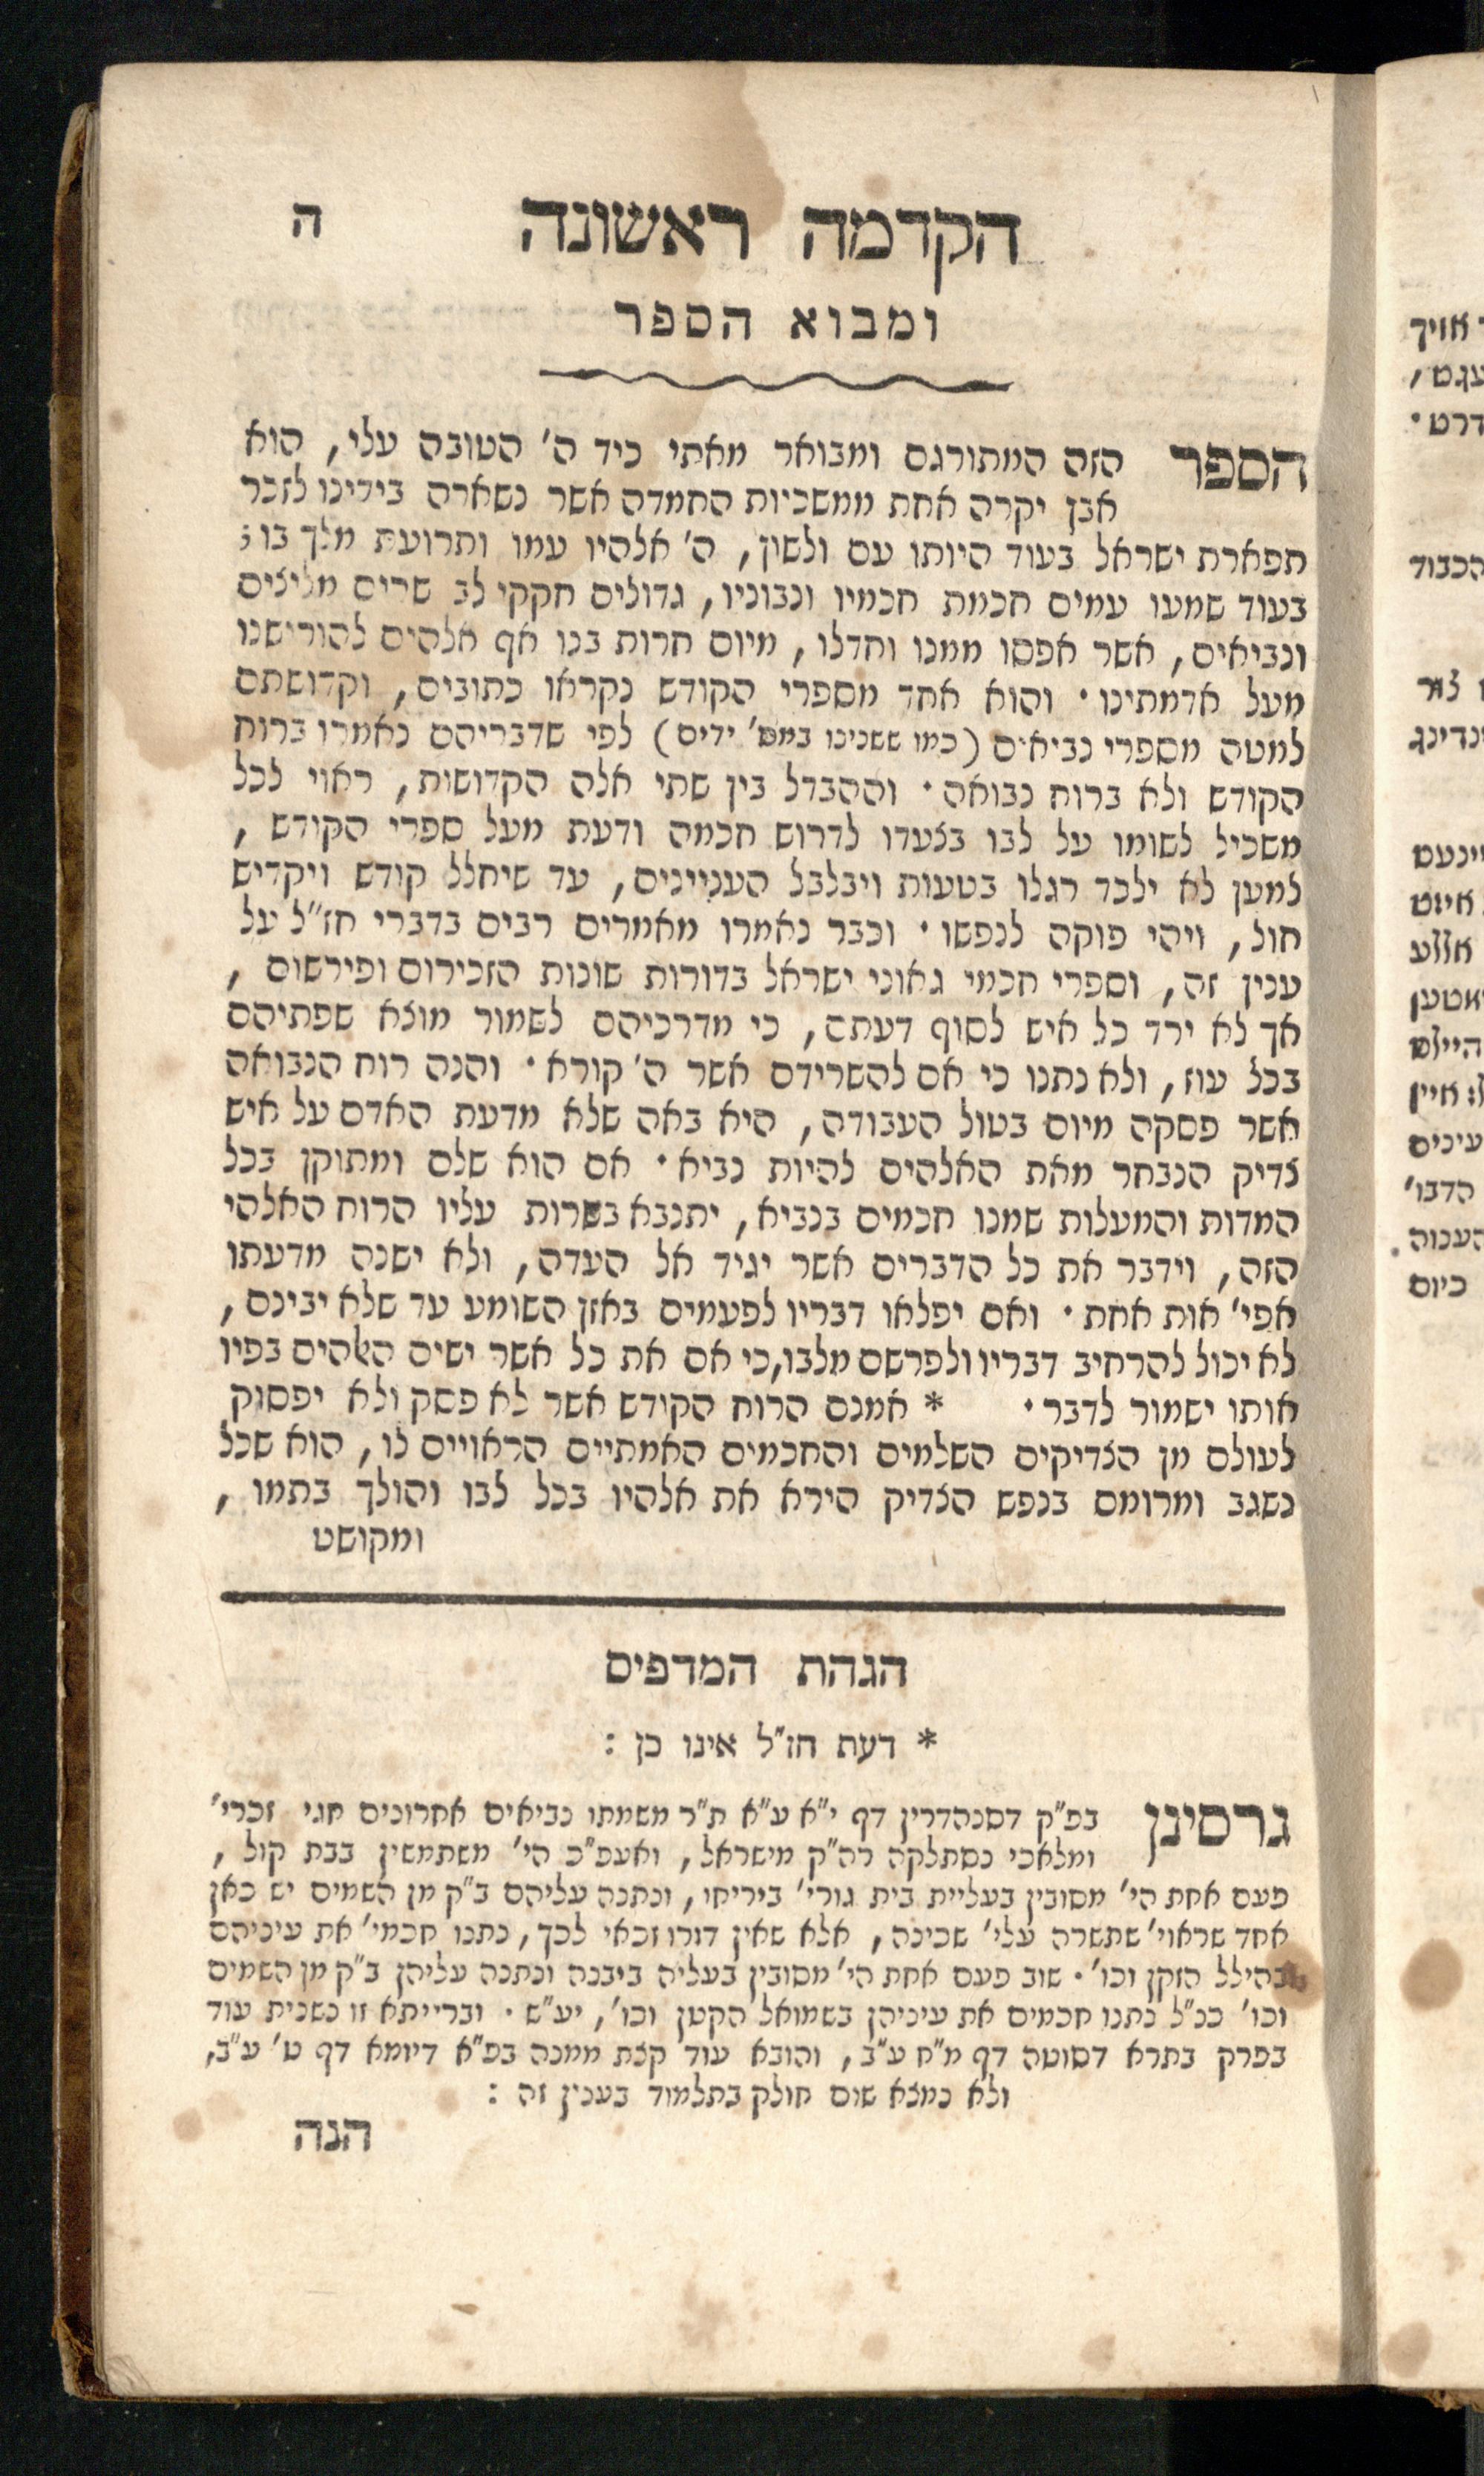 ה
הקדמה ראשונה
ומבוא הספר
הספר הזה המתורגם ומבואר מאתי כיד ה' הטובה עלי, הוא
אבן יקרה אחת ממשכיות החמדה אשר נשארה בידינו לזכר
תפארת ישראל בעוד היותו עם ולשון, ה' אלהיו עמו ותרועת מלך בו;
בעוד שמעו עמים חכמת חכמיו ונבוניו, גדולים חקקי לב שרים מליצים
ונביאים, אשר אפסו ממנו וחדלו, מיום חרות בנו אף אלהים להורישנו
מעל אדמתינו· והוא אחד מספרי הקודש נקראו כתובים, וקדושתם
למטה מספרי נביאים (כמו ששנינו במס' ידים) לפי שדבריהם נאמרו ברוח
הקודש ולא ברוח נבואה· וההבדל בין שתי אלה הקדושות, ראוי לכל
משכיל לשומו על לבו בצעדו לדרוש חכמה ודעת מעל ספרי הקודש,
למען לא ילכד רגלו בטעות ויבלבל העניינים, עד שיחלל קודש ויקדיש
חול, ויהי פוקה לנפשו· וכבר נאמרו מאמרים רבים בדברי חז"ל על
ענין זה, וספרי חכמי גאוני ישראל בדורות שונות הזכירום ופירשום,
אך לא ירד כל איש לסוף דעתם, כי מדרכיהם לשמור מוצא שפתיהם
בכל עוז, ולא נתנו כי אם להשרידם אשר ה' קורא· והנה רוח הנבואה
אשר פסקה מיום בטול העבודה, היא באה שלא מדעת האדם על איש
צדיק הנבחר מאת האלהים להיות נביא· אם הוא שלם ומתוקן בכל
המדות והמעלות שמנו חכמים בנביא, יתנבא בשרות עליו הרוח האלהי
הזה, וידבר את כל הדברים אשר יגיד אל העדה, ולא ישנה מדעתו
אפי' אות אחת· ואם יפלאו דבריו לפעמים באזן השומע עד שלא יבינם,
לא יכול להרחיב דבריו ולפרשם מלבו, כי אם את כל אשר ישים האלהים בפיו
אותו ישמור לדבר· * אמנם הרוח הקודש אשר לא פסק ולא יפסוק
לעולם מן הצדיקים השלמים והחכמים האמתיים הראויים לו, הוא שכל
נשגב ומרומם בנפש הצדיק הירא את אלהיו בכל לבו והולך בתמו,
ומקושט
הגהת המדפיס
* דעת חז"ל אינו כן:
גרסינן בפ"ק דסנהדרין דף י"א ע"א ת"ר משמתו נביאים אחרונים חגי זכרי'
ומלאכי נסתלקה רה"ק מישראל, ואעפ"כ הי' משתמשין בבת קול,
פעם אחת הי' מסובין בעליית בית גורי' ביריחו, ונתנה עליהם ב"ק מן השמים יש כאן
אחד שראוי' שתשרה עלי' שכינה, אלא שאין דורו זכאי לכך, נתנו חכמי' את עיניהם
בהילל הזקן וכו'· שוב פעם אחת הי' מסובין בעליה ביבנה ונתנה עליהן ב"ק מן השמים
וכו' כנ"ל נתנו חכמים את עיניהן בשמואל הקטן וכו', יע"ש· וברייתא זו נשנית עוד
בפרק בתרא דסוטה דף מ"ח ע"ב, והובא עוד קצת ממנה בפ"א דיומא דף ט' ע"ב,
ולא נמצא שום חולק בתלמוד בענין זה:
הנה